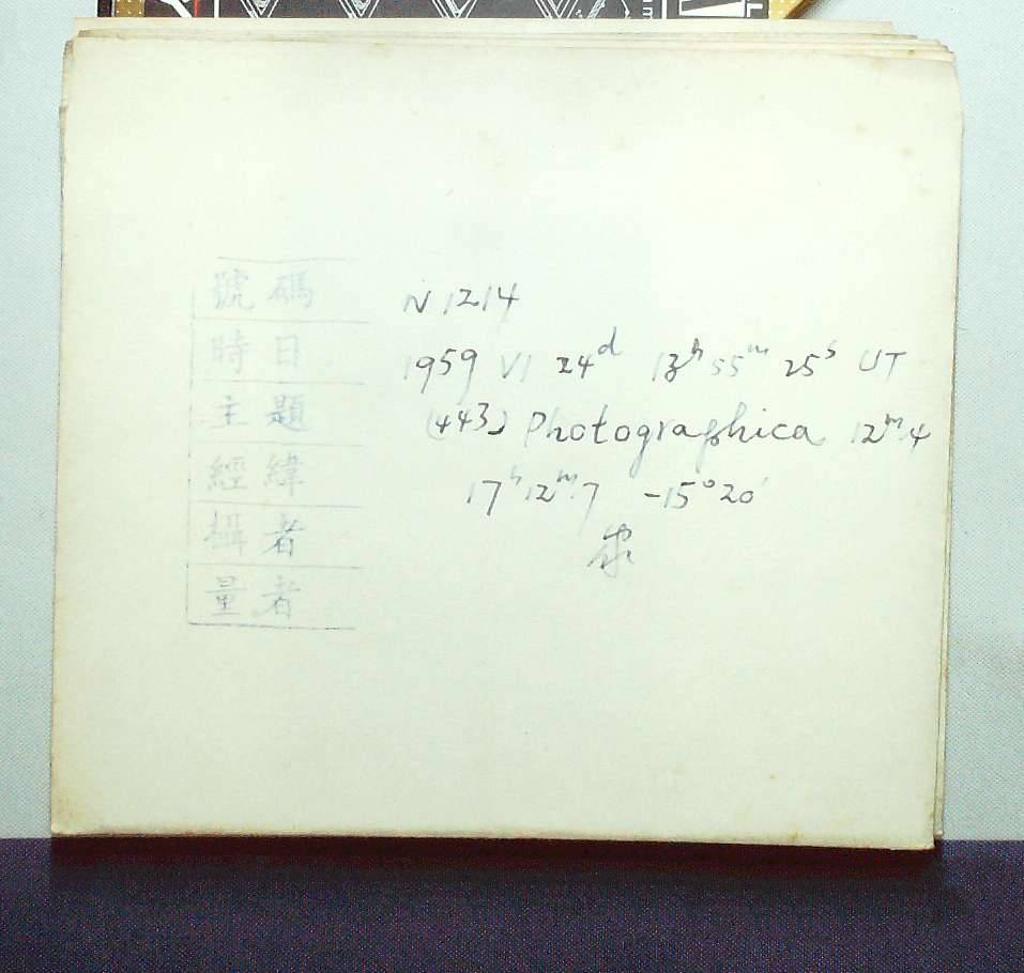 號碼 N 1214
時日 1959 VI 24ᵈ 13ʰ 55ᵐ 25ˢ UT
主題 (443) Photographica 12ᵐ.4
經緯 17ʰ12ᵐ.7 -15°20'
攝者
量者